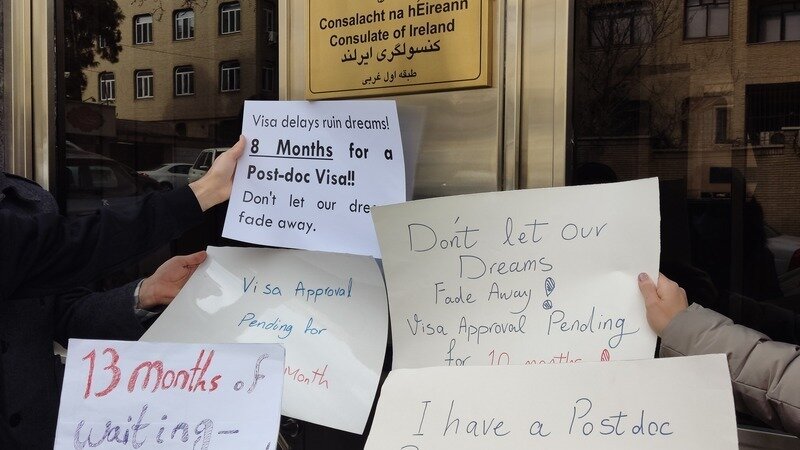 Consalacht na hÉireann
Consulate of Ireland
کنسولگری ایرلند
طبقه اول غربی
Visa delays ruin dreams!
8 Months for a
Post-doc Visa!!
Don't let our
fade away.
Don't let our
Dreams
Fade Away!
Visa Approval Pending
for 10 months!
Visa Approval
Pending for
Month
13 months of
waiting-
I have a Postdoc